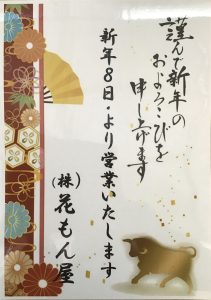 謹んで新年の
およろこびを
申し上げます
新年8日・より営業いたします
(株)花もん屋